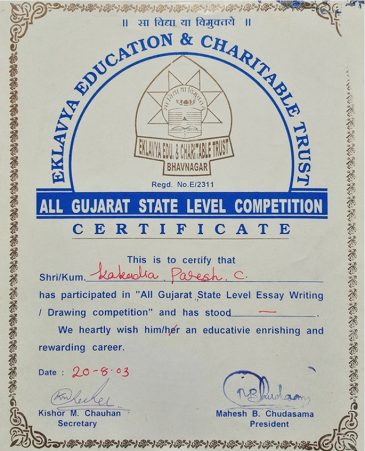 ॥ सा विद्या या विमुक्तये ॥
EKLAVYA EDUCATION & CHARITABLE TRUST
EKLAVYA EDU. & CHARITABLE TRUST
BHAVNAGAR
Regd. No.E/2311
ALL GUJARAT STATE LEVEL COMPETITION
CERTIFICATE
This is to certify that
Shri/Kum. Kakadia Paresh. C.
has participated in "All Gujarat State Level Essay Writing
/ Drawing competition" and has stood —.
We heartly wish him/her an educativie enrishing and
rewarding career.
Date : 20-8-03
Kishor M. Chauhan
Secretary
Mahesh B. Chudasama
President